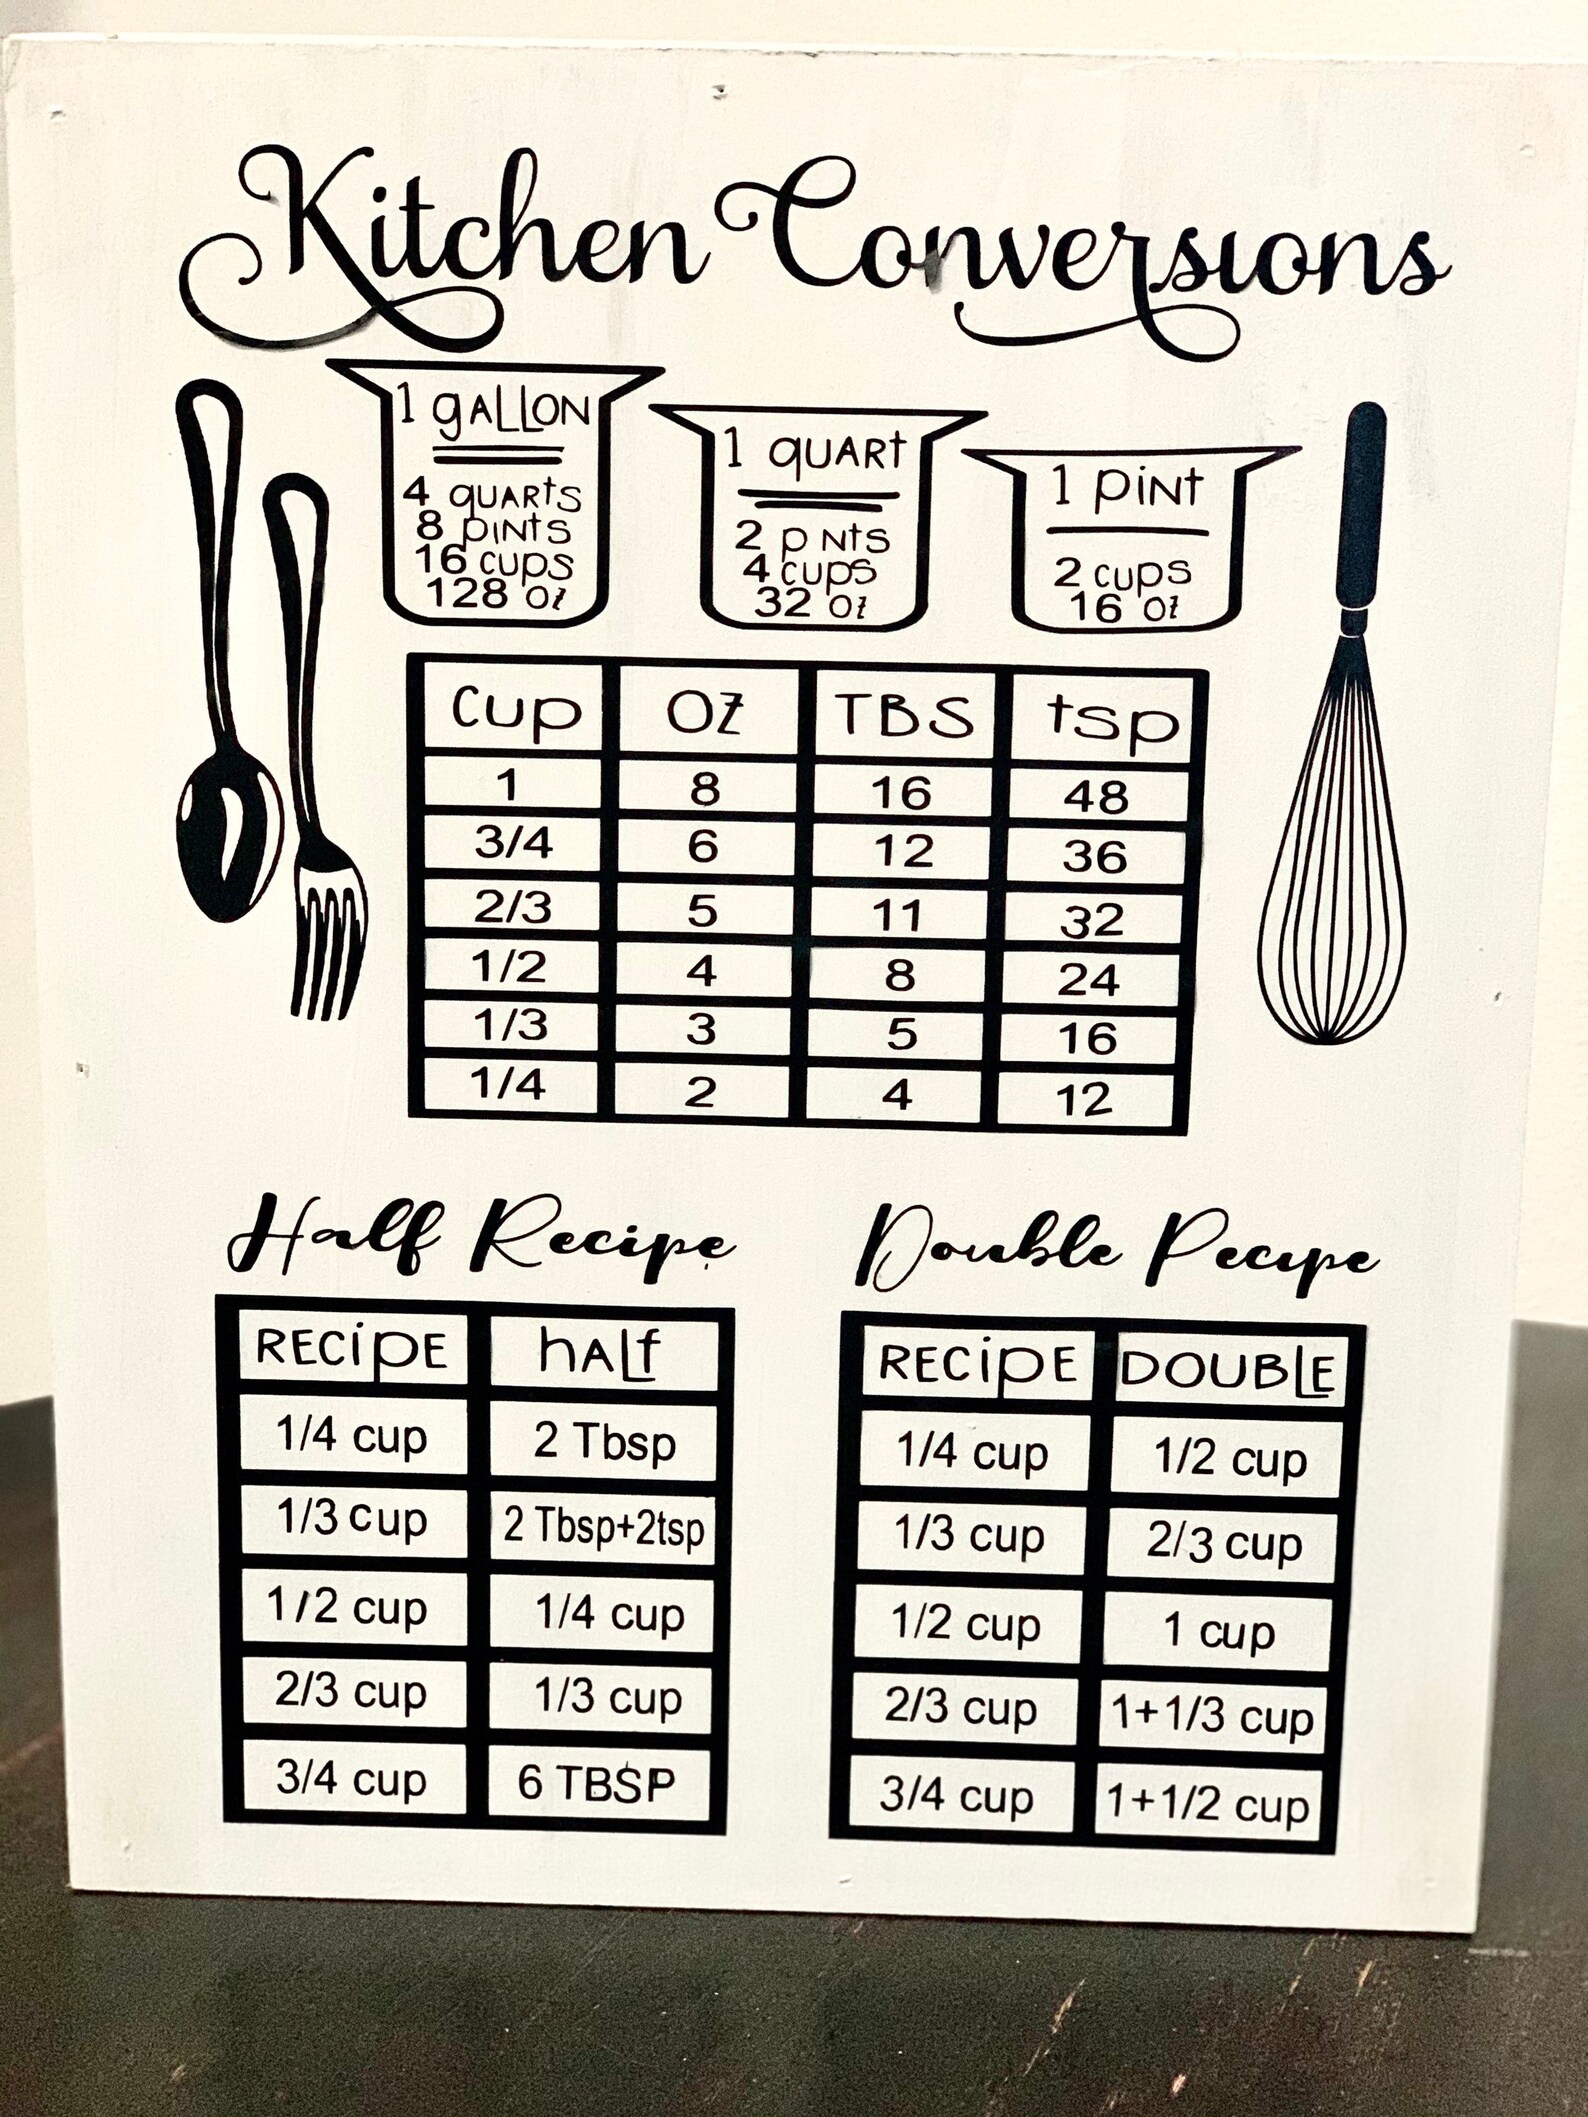 Kitchen Conversions
1 gALLON
4 quARtS
8 pINtS
16 cupS
128 oz
1 quARt
2 p NtS
4 cupS
32 oz
1 piNt
2 cupS
16 oz
cup OZ TBS tsp
1 8 16 48
3/4 6 12 36
2/3 5 11 32
1/2 4 8 24
1/3 3 5 16
1/4 2 4 12
Half Recipe
RECipE hALf
1/4 cup 2 Tbsp
1/3 cup 2 Tbsp+2tsp
1/2 cup 1/4 cup
2/3 cup 1/3 cup
3/4 cup 6 TBSP
Double Pecipe
RECipE DOUBLE
1/4 cup 1/2 cup
1/3 cup 2/3 cup
1/2 cup 1 cup
2/3 cup 1+1/3 cup
3/4 cup 1+1/2 cup